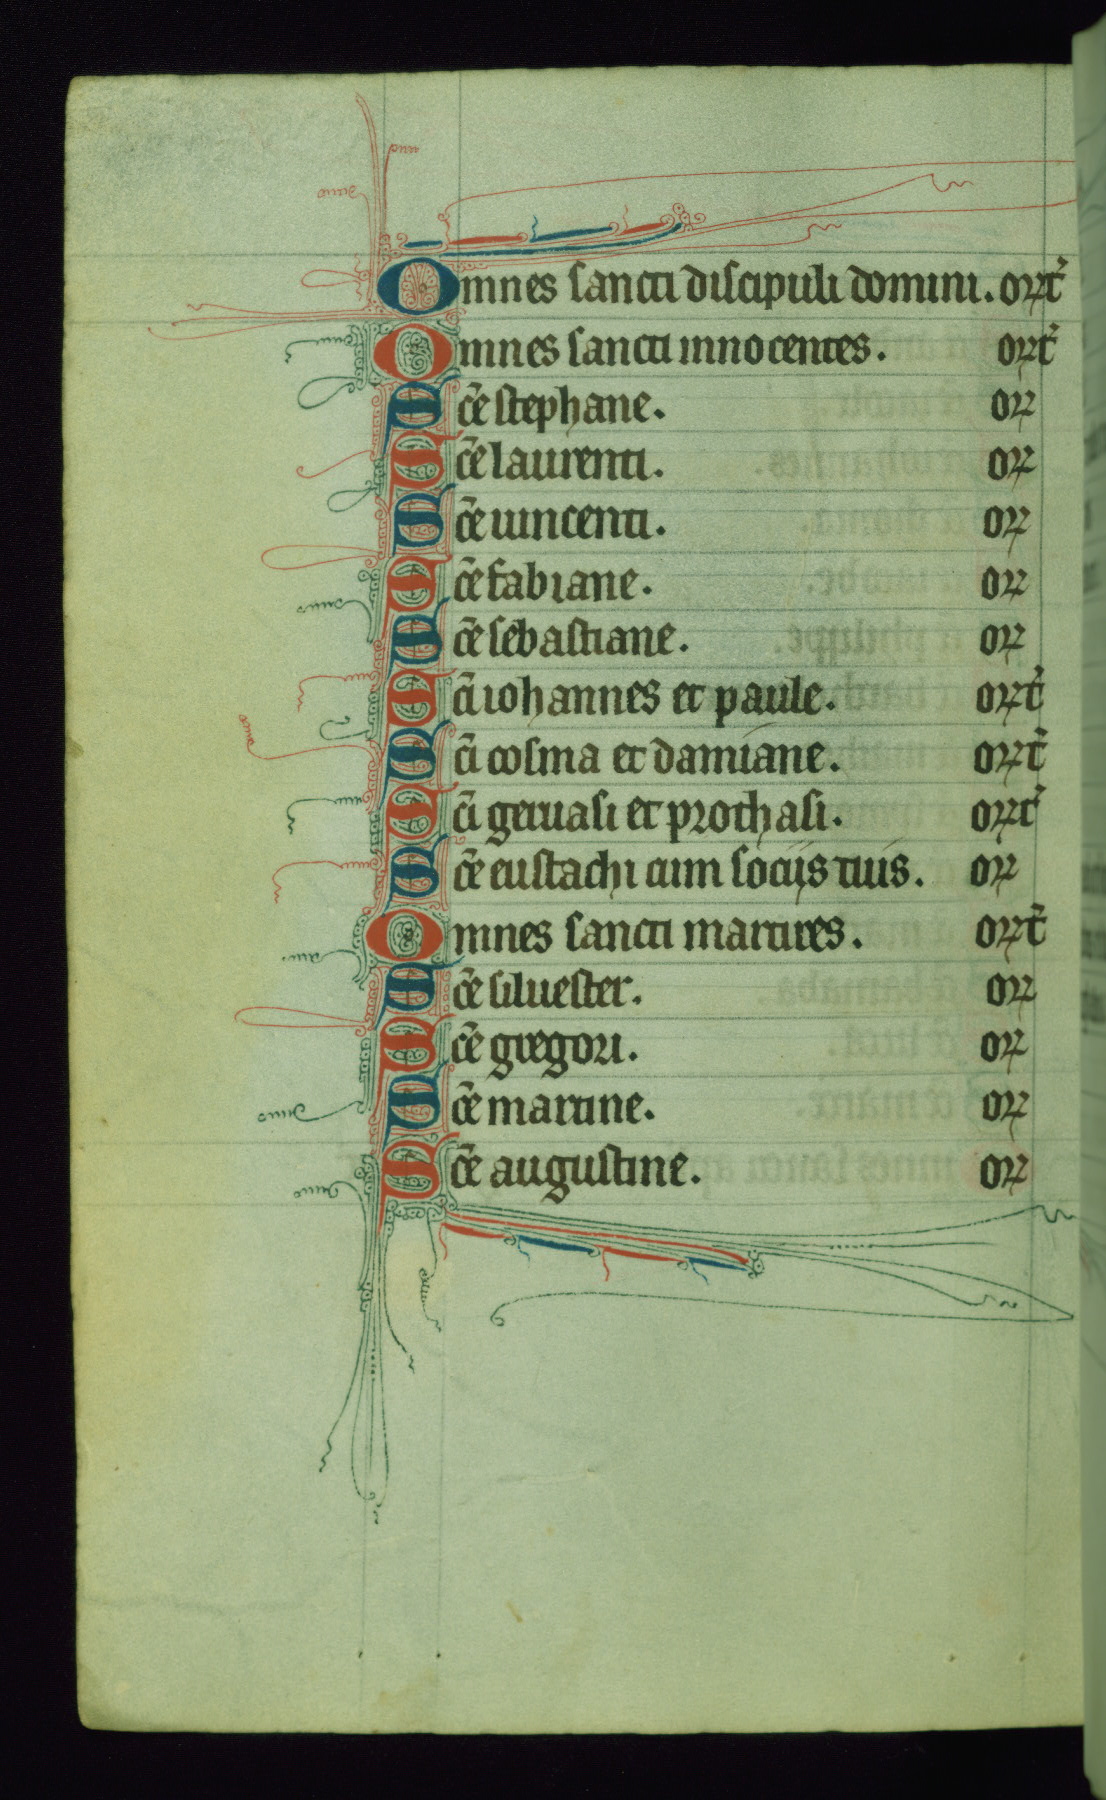 Omnes sancti discipuli domini. orꝛt̃
Omnes sancti innocentes. orꝛt̃
Sc̃e stephane. orꝛ
Sc̃e laurenti. orꝛ
Sc̃e uincenti. orꝛ
Sc̃e fabiane. orꝛ
Sc̃e sebastiane. orꝛ
Sc̃i iohannes et paule. orꝛt̃
Sc̃i cosma et damiane. orꝛt̃
Sc̃i geruasi et prothasi. orꝛt̃
Sc̃e eustachi cum sociis tuis. orꝛ
Omnes sancti martires. orꝛt̃
Sc̃e siluester. orꝛ
Sc̃e gregori. orꝛ
Sc̃e martine. orꝛ
Sc̃e augustine. orꝛ